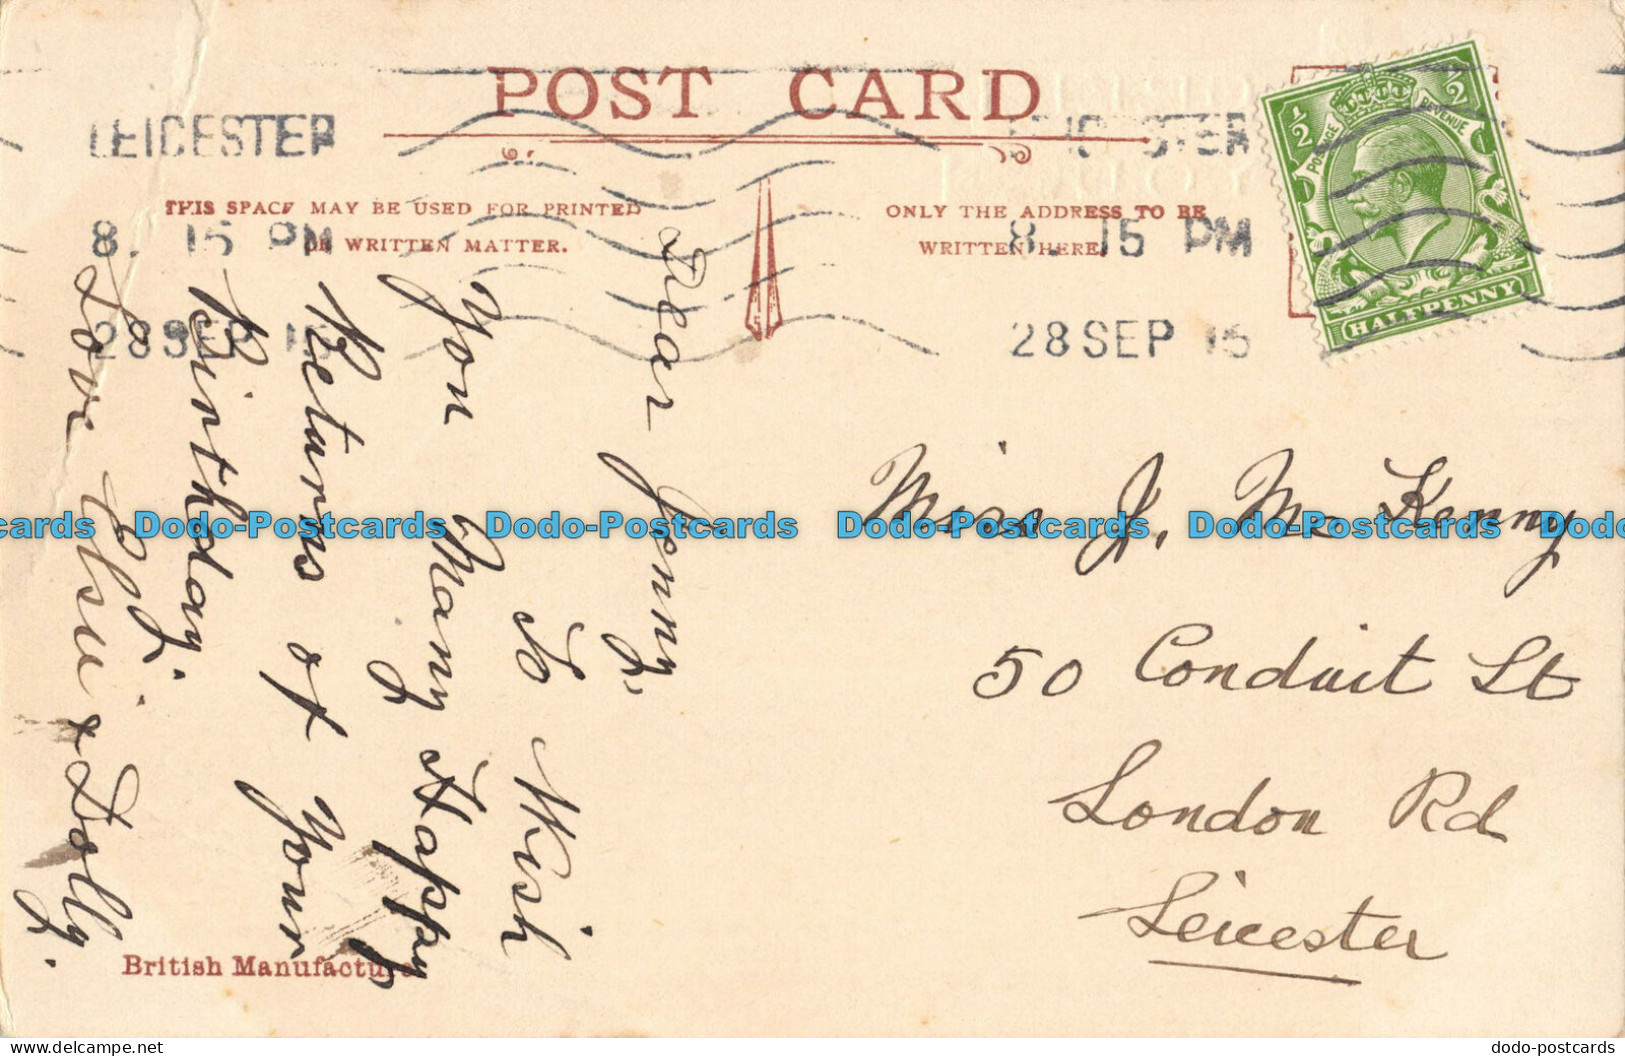 POST CARD
LEICESTER
8. 15 PM
28 SEP 15
LEICESTER
8. 15 PM
28 SEP 15
THIS SPACE MAY BE USED FOR PRINTED
OR WRITTEN MATTER.
ONLY THE ADDRESS TO BE
WRITTEN HERE
1/2 POSTAGE REVENUE 1/2
HALFPENNY
Dear Jenny,
To Wish
You Many Happy
Returns of Your
Birthday.
Love Elsie & Dolly.
Miss J. Mc Kenny
50 Conduit St
London Rd
Leicester
British Manufacture
Dodo-Postcards Dodo-Postcards Dodo-Postcards Dodo-Postcards Dodo-Postcards
dodo-postcards.com
dodo-postcards.com